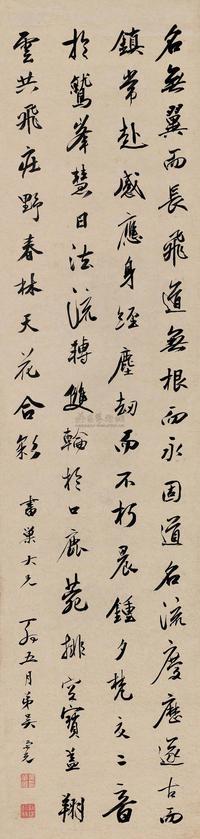 名無翼而長飛道無根而永固道名流慶歷遂古而
鎮常赴感應身經塵劫而不朽晨鍾夕梵交二音
於鷲峯慧日法流轉雙輪於口鹿菀排空寶蓋翔
雲共飛莊野春林天花合彩
書巢大兄
五月弟吳